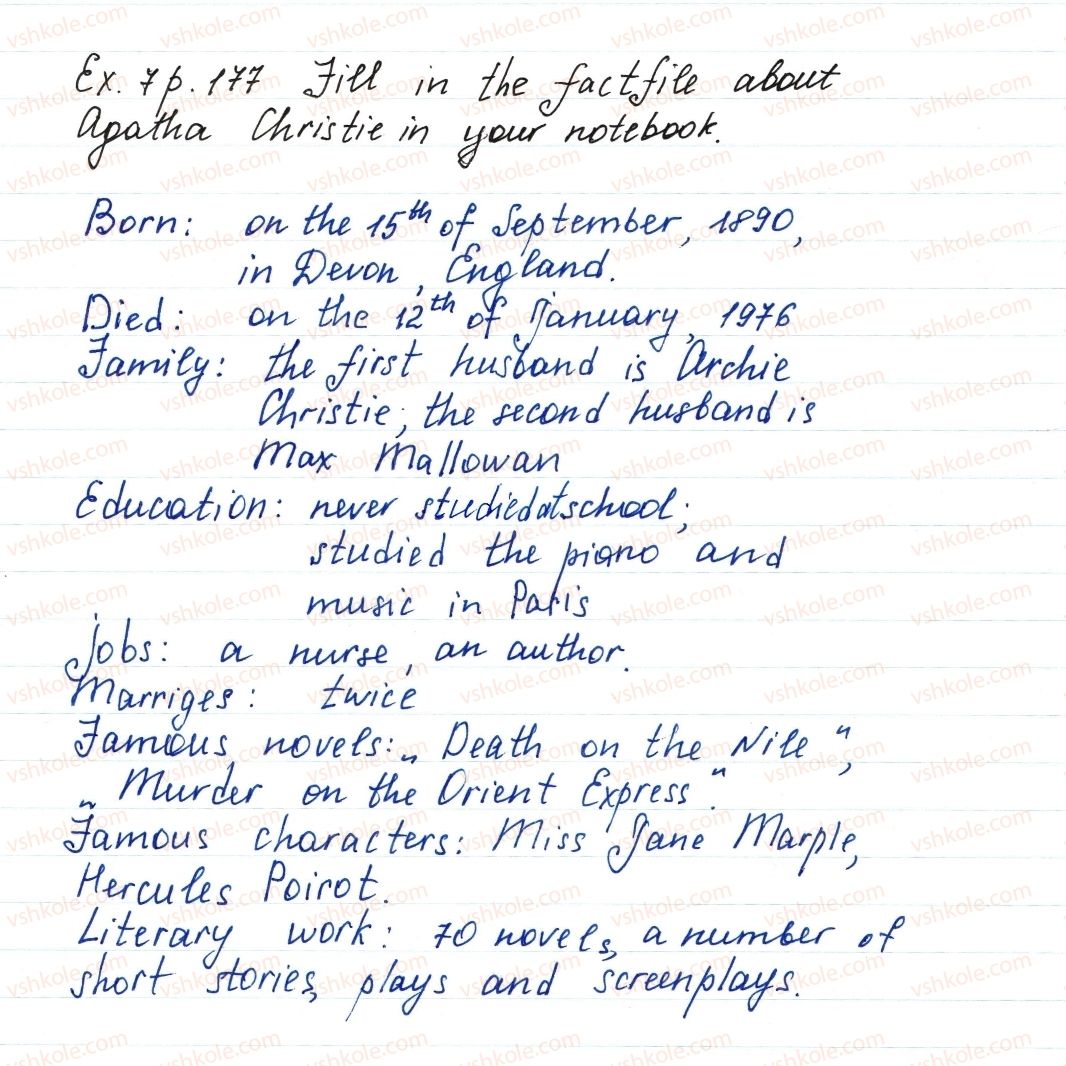 Ex. 7 p. 177 Fill in the factfile about
Agatha Christie in your notebook.
Born: on the 15th of September, 1890,
in Devon, England.
Died: on the 12th of January, 1976
Family: the first husband is Archie
Christie; the second husband is
Max Mallowan
Education: never studied at school;
studied the piano and
music in Paris
Jobs: a nurse, an author.
Marriges: twice
Famous novels: „Death on the Nile“,
„Murder on the Orient Express“.
Famous characters: Miss Jane Marple,
Hercules Poirot.
Literary work: 70 novels, a number of
short stories, plays and screenplays.